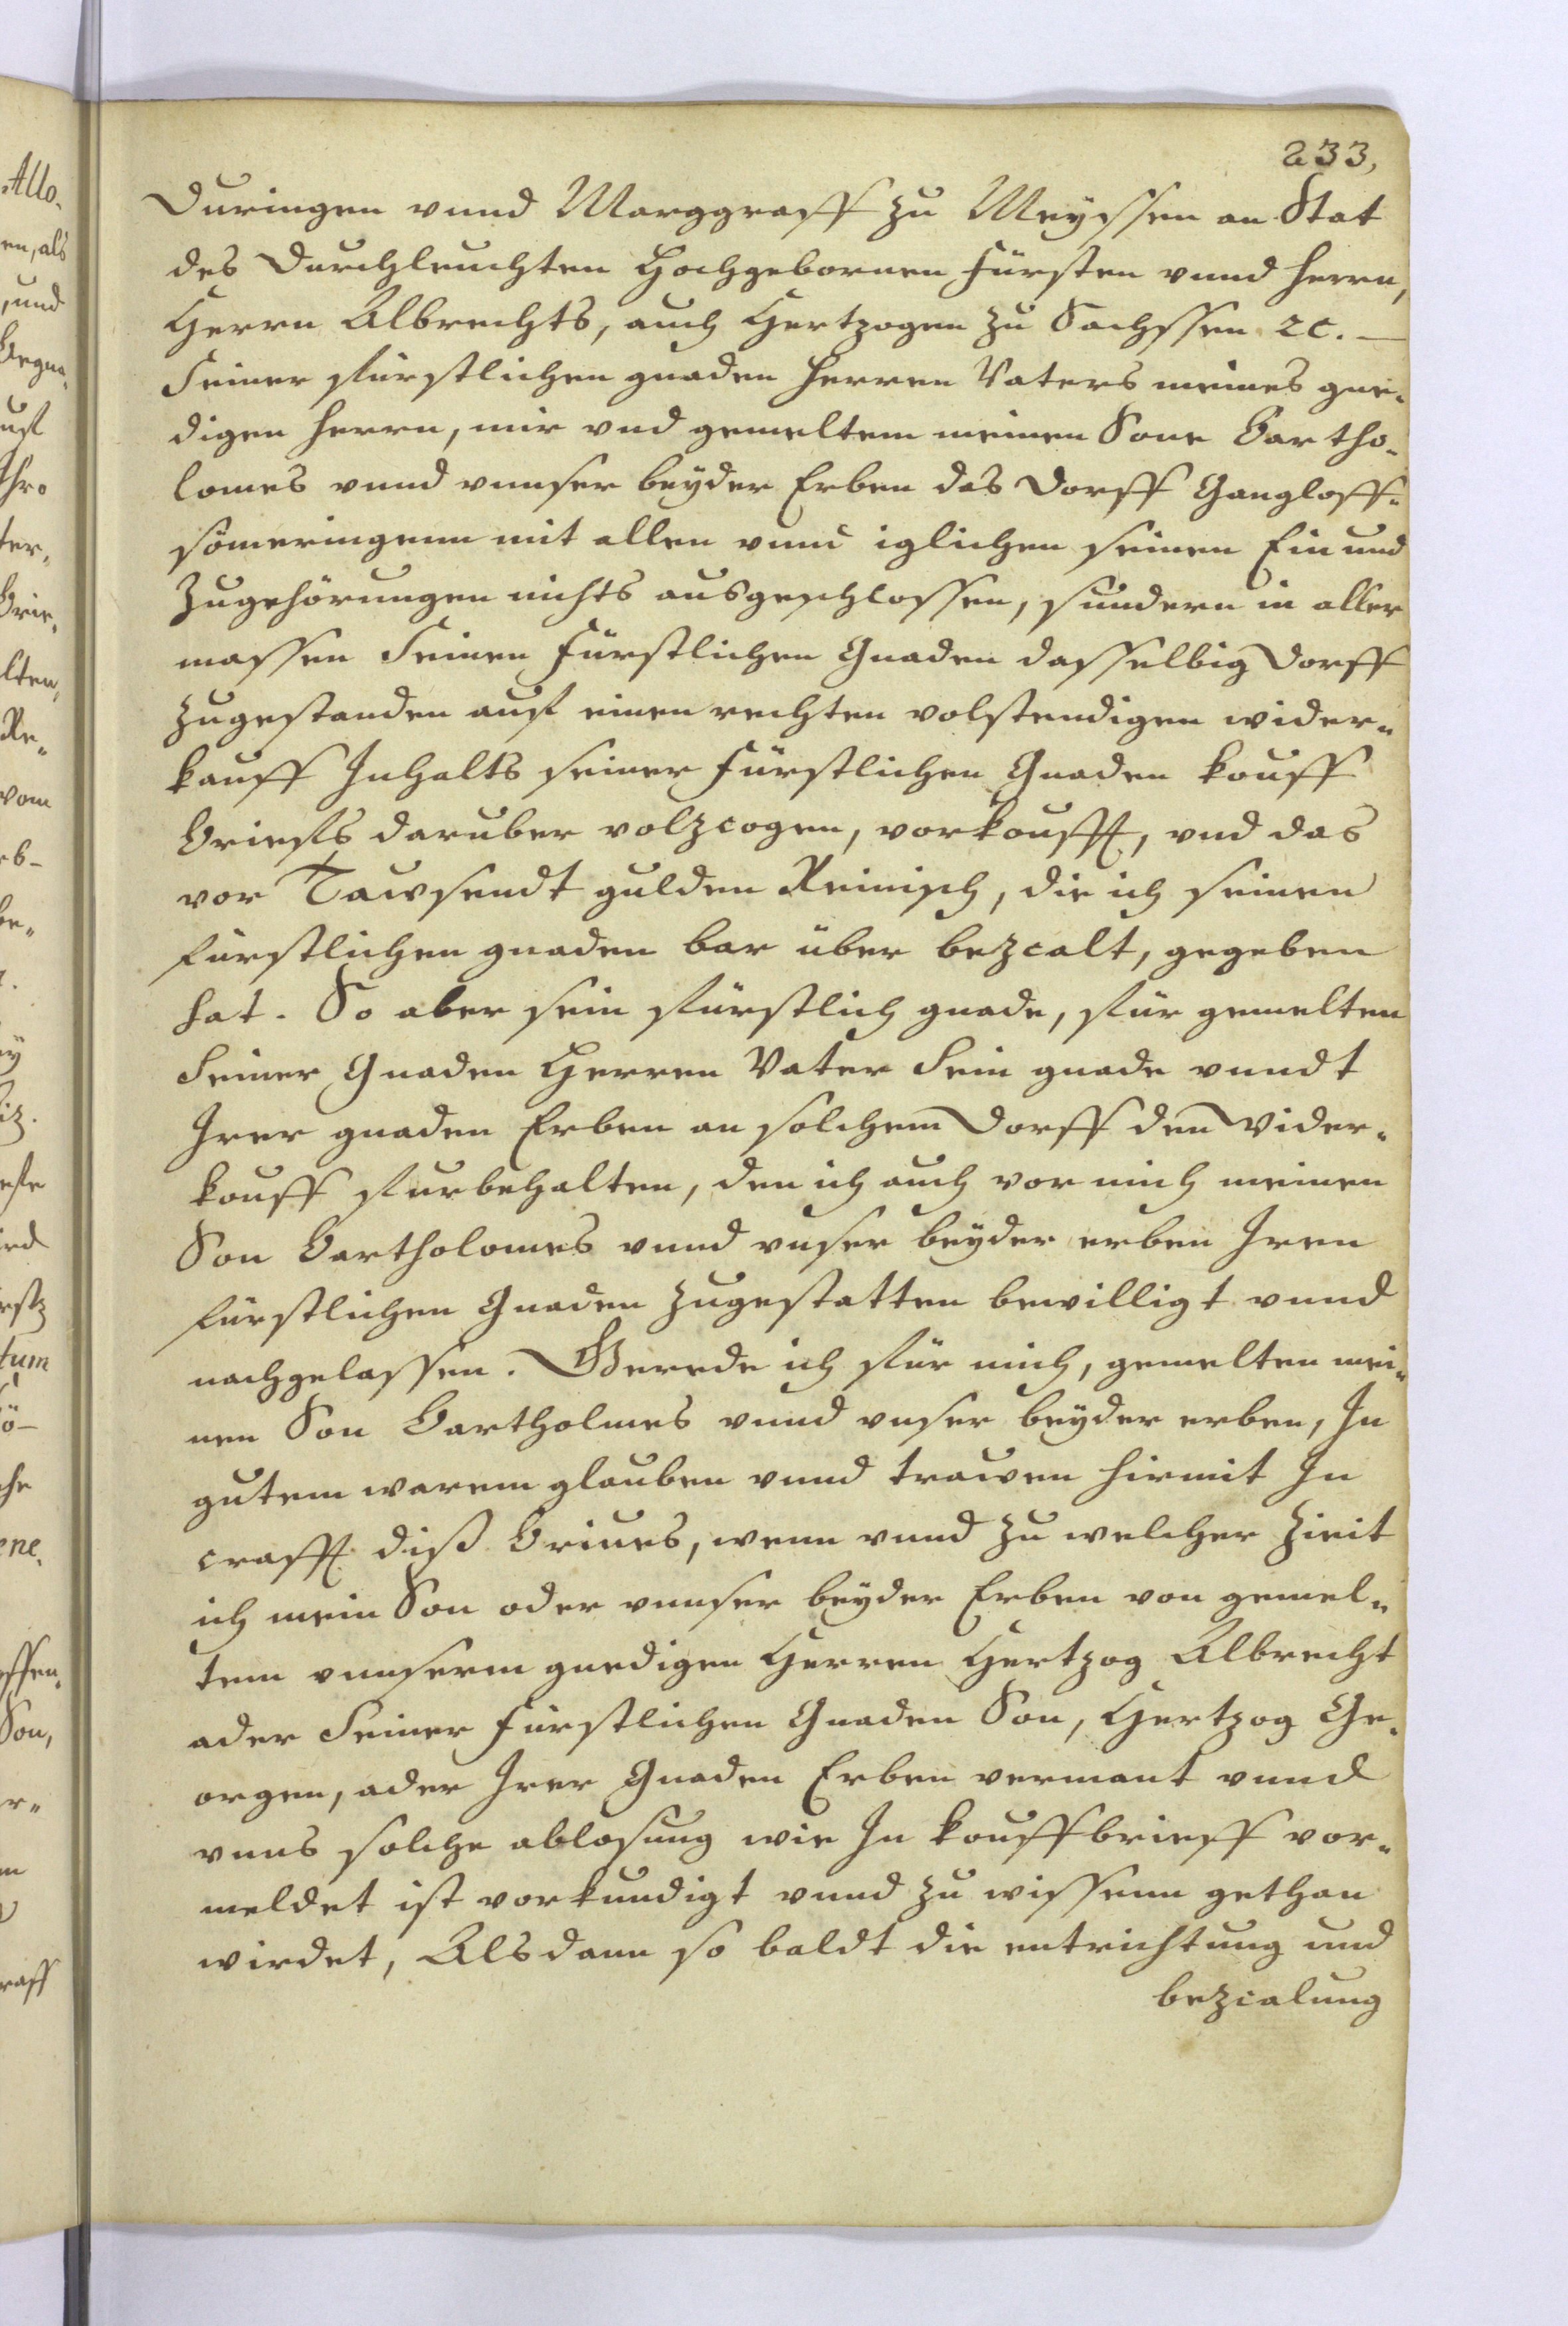 233,
Duringen vnnd Marggraff zu Meyssen an Stat
des Durchleuchten Hochgebornen Fürsten vnnd Herrn,
Herrn Albrechts, auch Hertzogen zu Sachssen 2c. —
Seiner ffürstlichen gnaden Herren Vaters meines gne-
digen Herrn, mir vnd gemeltem meinen Sone Bartho-
lomes vnnd vnnser beyder Erben das Dorff Gangloff-
sömeringenn mit allen vnnd iglichen seinen Ein und
Zugehörungen nichts ausgeschlossen, sundern in aller
massen Seinen Fürstlichen Gnaden dasselbig Dorff
zugestanden auf einen rechten volstendigen wider-
kauff Inhalts seiner Fürstlichen Gnaden kouff
Brieffs daruber volzcogen, vorkoufft, vnd das
vor Tawsendt gulden Reinisch, die ich seinen
fürstlichen gnaden bar über bezcalt, gegeben
hat. So aber sein ffürstlich gnade, ffür gemelten
Seiner Gnaden Herren Vater Sein gnade vnndt
Irer gnaden Erben an solchem Dorff den Wider-
kouff ffurbehalten, den ich auch vor mich meinen
Son Bartholomes vnnd vnser beyder erben Iren
fürstlichen Gnaden zugestatten bewilligt vnnd
nachgelassen. Gerede ich ffür mich, gemelten mei-
nen Son Bartholmes vnnd vnser beyder erben, In
gutem warem glauben vnnd trawen hirmit In
crafft diß Briues, wenn vnnd zu welcher Zieit
ich mein Son oder vnnser beyder Erben von gemel-
tem vnnserm gnedigen Herren Hertzog Albrecht
ader Seiner Fürstlichen Gnaden Son, Hertzog Ge-
orgen, ader Irer Gnaden Erben vermant vnnd
vnns solche ablosung wie In kouffbrieff vor-
meldet ist vorkundigt vnnd zu wissenn gethan
wirdet, Alsdann so baldt die entrichtung und
bezcalung